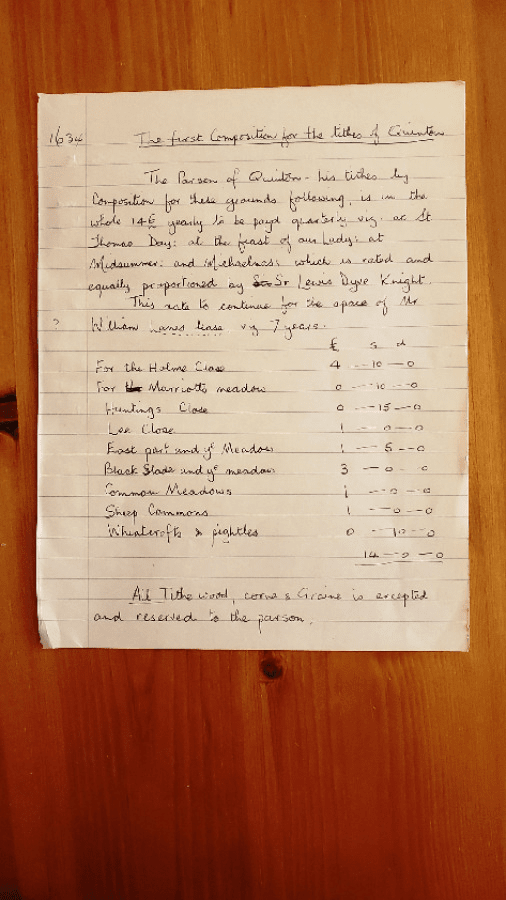 1634 The first Composition for the tithes of Quinton
The Parson of Quinton - his tithes by
Composition for these grounds following, is in the
whole 14£ yearly to be payd quarterly viz. at St
Thomas Day: at the feast of our Lady: at
Midsummer: and Michaelmas: which is rated and
equally proportioned by Sr Lewis Dyve Knight.
This rate to continue for the space of Mr
? William Lanes lease viz 7 years.
£ s d
For the Holme Close 4 -- 10 -- 0
For Marriotts meadow 0 -- 10 -- 0
Huntings Close 0 -- 15 -- 0
Lee Close 1 -- 0 -- 0
East part and ye Meadow 1 -- 5 -- 0
Black Slade and ye meadow 3 -- 0 - 0
Common Meadows 1 -- 0 -- 0
Sheep Commons 1 -- 0 -- 0
Wheatcrofts & pightles 0 -- 10 -- 0
14 -- 0 -- 0
All Tithe wood, corne & Graine is excepted
and reserved to the parson.